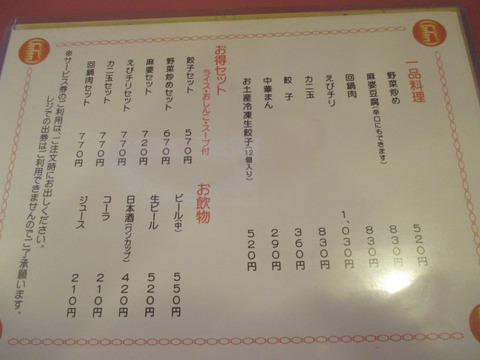 一品料理
野菜炒め 520円
麻婆豆腐(辛口にもできます) 830円
回鍋肉 830円
えびチリ 1,030円
カニ玉 830円
餃子 360円
中華まん 290円
お土産冷凍生餃子(12個入り) 520円
お得セット
ライス・おしんこ・スープ付
餃子セット 570円
野菜炒めセット 670円
麻婆セット 720円
えびチリセット 770円
カニ玉セット 770円
回鍋肉セット 770円
お飲物
ビール(中) 550円
生ビール 520円
日本酒(ワンカップ) 420円
コーラ 210円
ジュース 210円
※サービス券のご利用は、ご注文時にお出しください。
レジでの出券はご利用できませんのでご了承願います。